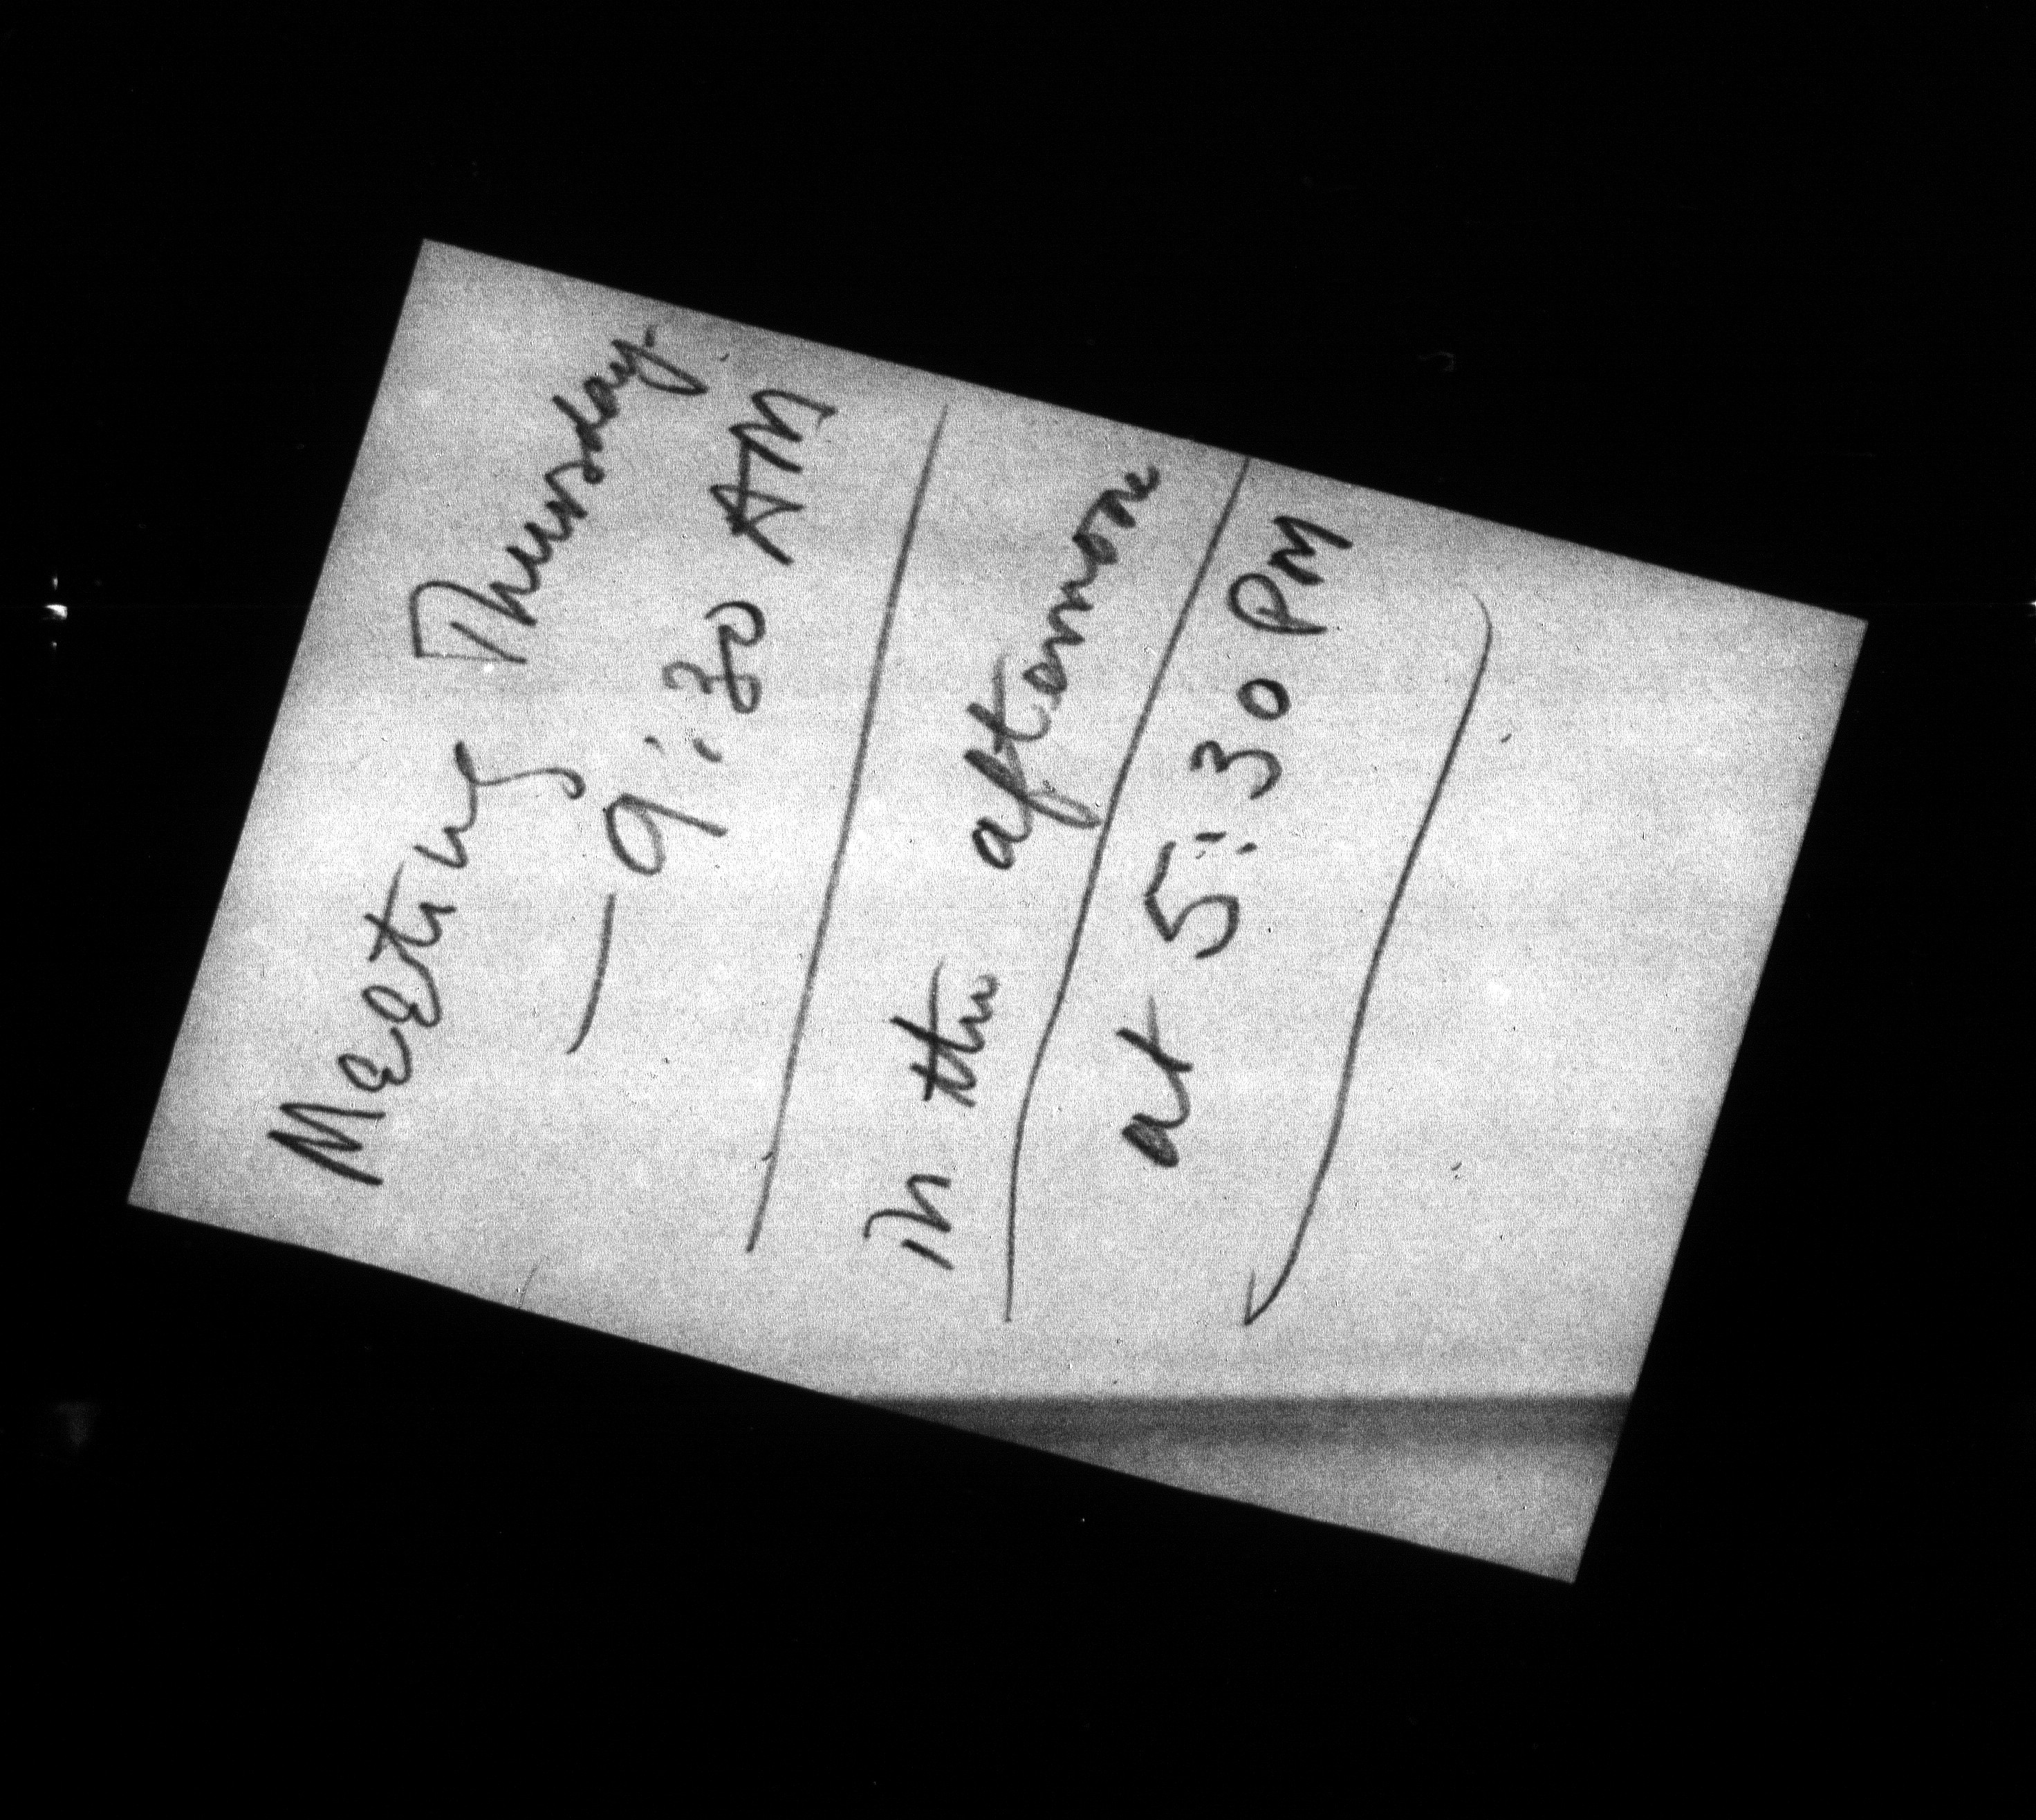 Meeting Thursday.
— 9:30 AM
In the afternoon
at 5:30 PM